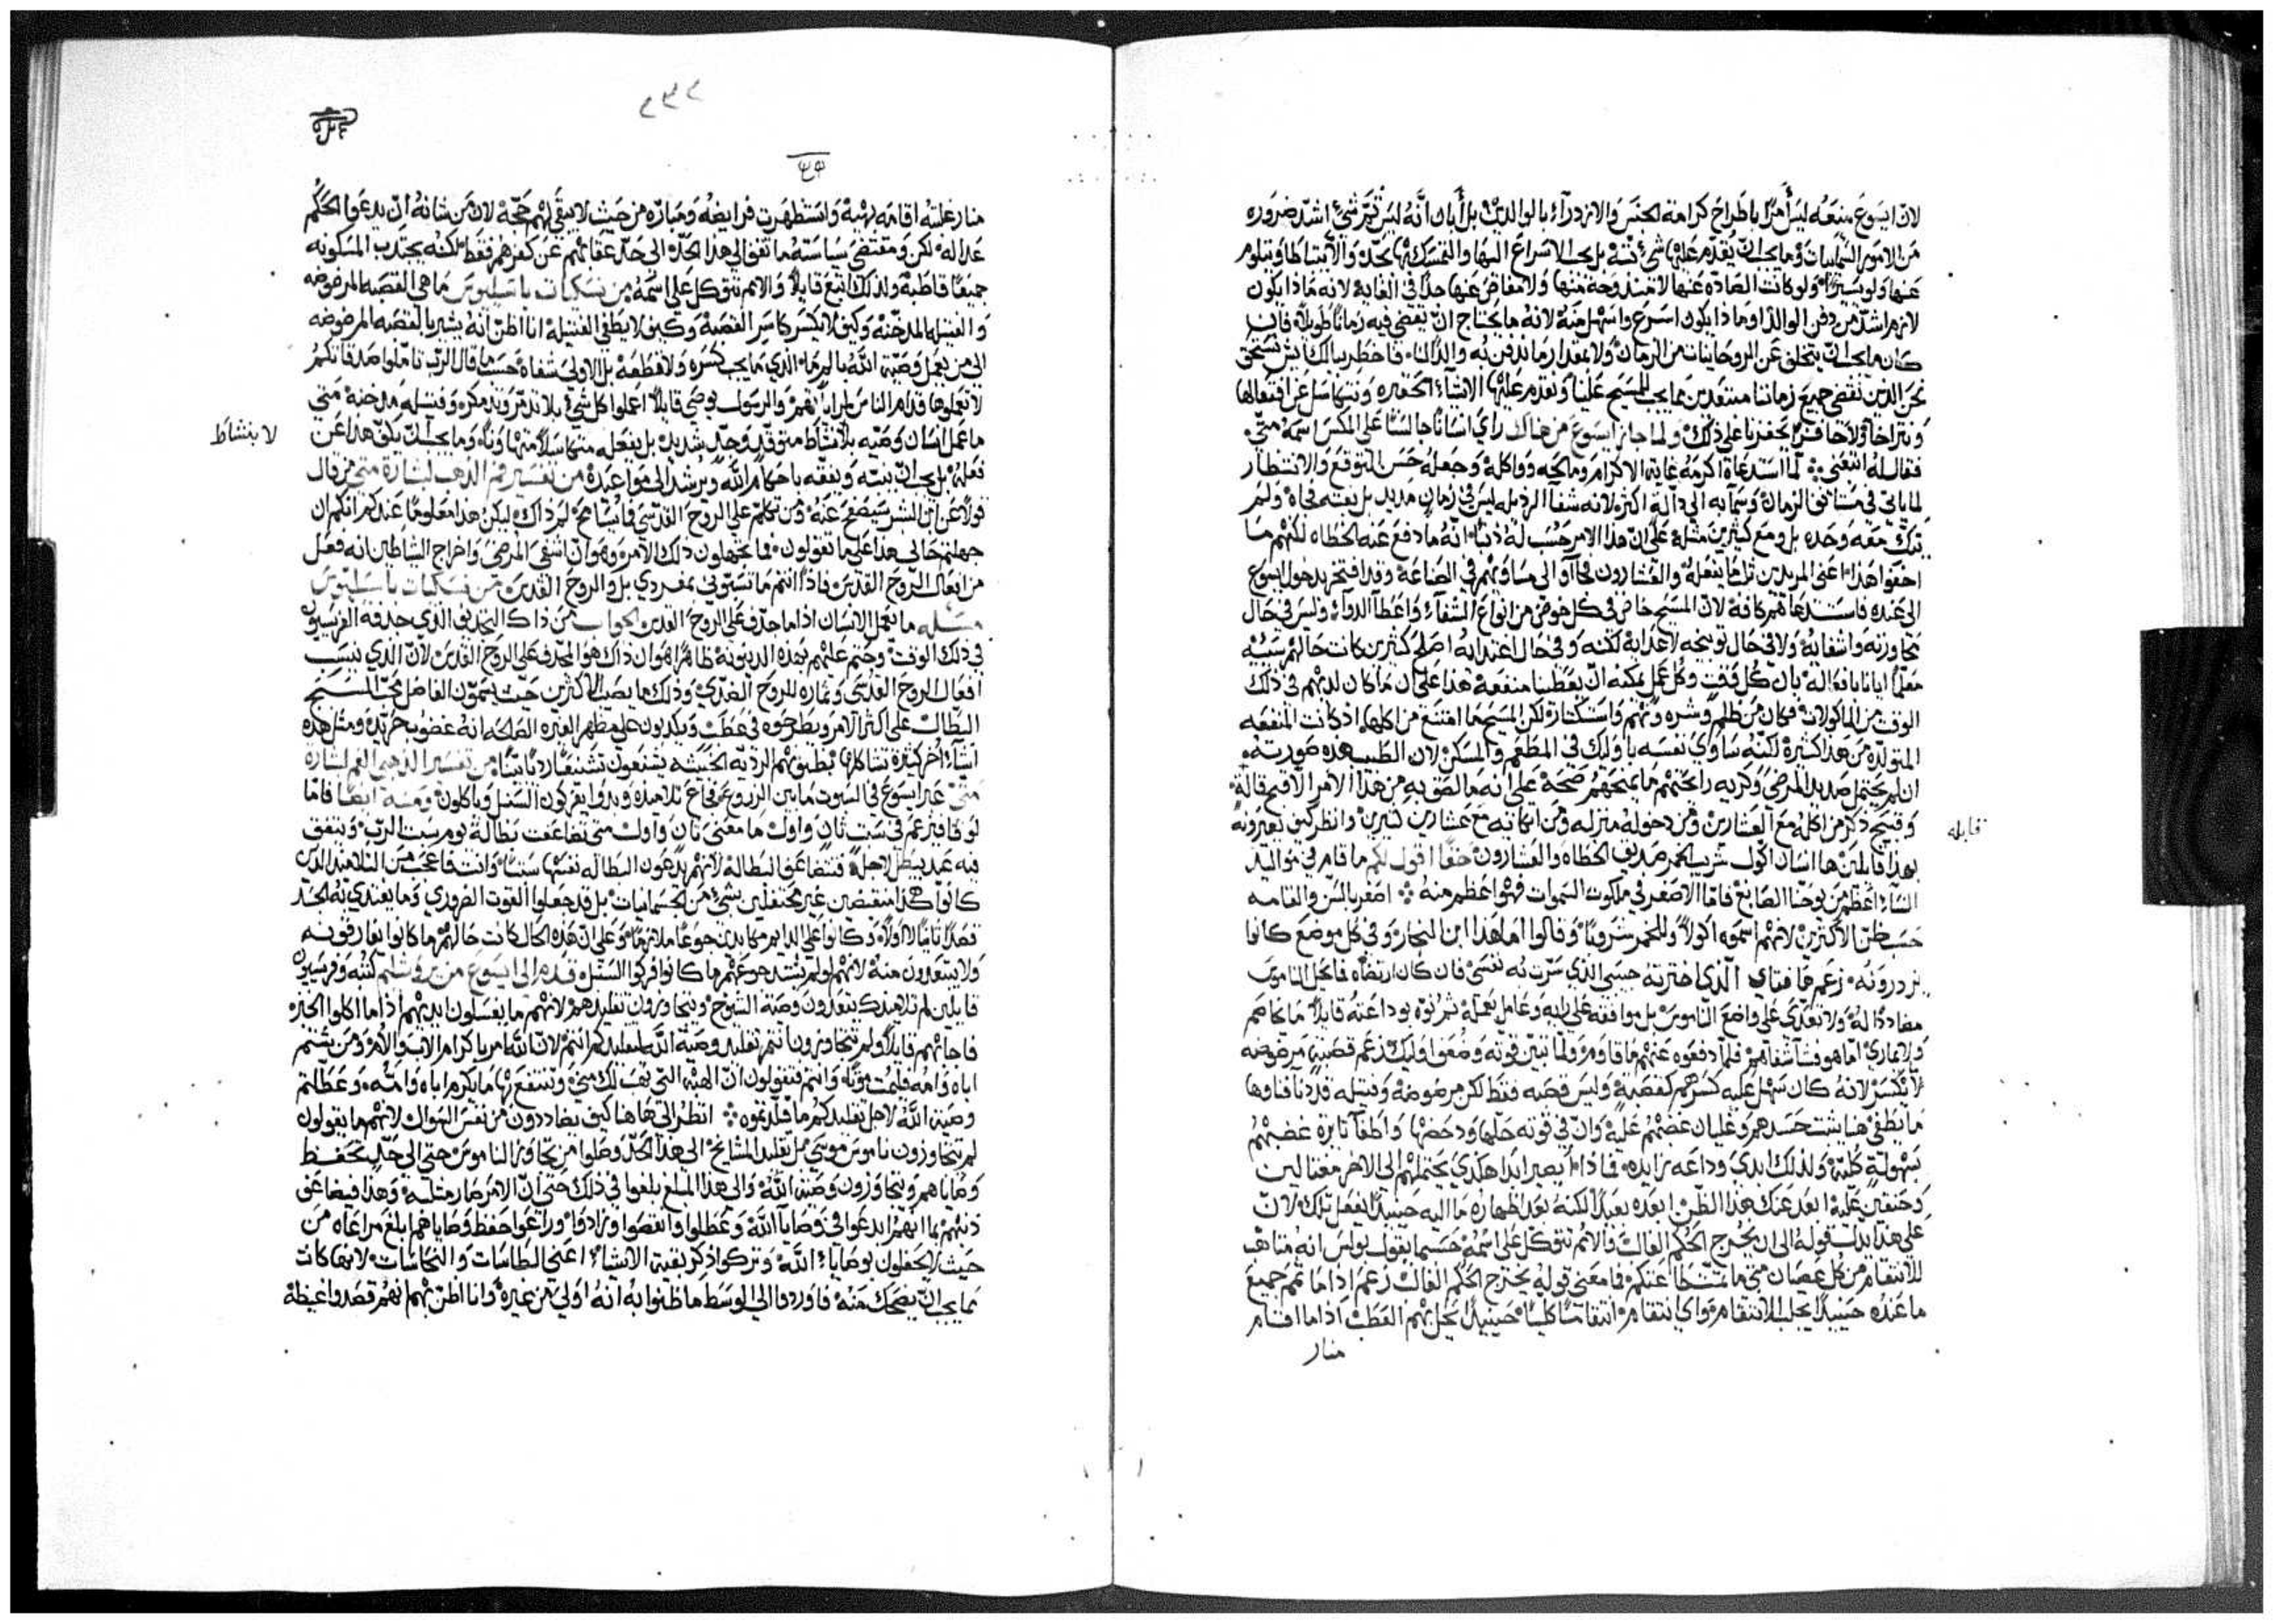 لان ايسوع منعه ليس آمرًا باطراح كرامة الجنس والازدراء بالوالدين بل أبان أنه ليس ثم شيء اشد ضروره
من الامور السمايات وما يجب ان يقدم عليها شيء بته بل يجب الاسراع اليها والتمسك بها بجد والا نتباطا ونتلوم
عنها ولو يسيرًا ولو كانت الصاده عنها لا مندوحة منها ولا مفاص عنها جدًا في الغاية لانه ماذا يكون
لازم اشد من دفن الوالد او ماذا يكون اسرع واسهل منه لانه ما يحتاج ان نقضي فيه زمانًا طويلًا فان
كان ما يجب ان يتخلف عن الروحانيات من الزمان ولا مقدار ما ندفن به والدًا لنا فاخطر ببالك ايش نستحق
نحن الذين نقضي جميع زماننا مبتعدين مما يجب للمسيح علينا ونقدم عليها الاشياء الحقيره ونتكاسل عن افتعالها
ونتراخا ولا حافزًا يحفزنا على ذلك ولما جاز ايسوع من هناك راى انسانًا جالسًا على المكس اسمه متى
فقال له اتبعني لما استدعاه اكرمه غاية الاكرام ومالحه وواكله وجعله حسن التوقع والانتظار
لما ياتي في مستانف الزمان وسما به الى دالة اكثر لانه شفا الرذيله ليس في زمان مديد بل بغته فجاه ولم
يتك معه وحده بل ومع كثيرين مثله على ان هذا الامر حسب له ذنبًا انه ما دفع عنه الخطاه لكنهم ما
اخفوا هذا اعني المريدين ثلب ما يفعله والعشارون جاآو الى مساويهم في الصناعة وقد افتخر بدخول ايسوع
الى عنده فاستدعاهم كافة لان المسيح خاض في كل خوض من انواع الشفاء واعطا الدواء وليس في حال
محاورته واشفايه ولا في حال توبيخه لاعدايه لكنه وفي حال اغتدايه اصلح كثيرين كانت حالهم سيئه
معلمًا ايانا بافعاله بان كل وقت وكل عمل يمكنه ان يعطينا منفعة هذا على ان ما كان لديهم في ذلك
الوقت من الماكولات فكان من ظلم وشره ونهم واستكثار لكن المسيح ما امتنع من اكلها اذ كانت المنفعه
المتولدة من هذا كثيرة لكنه ساوى نفسه باوليك في المطعم والمسكن لان الطبيب هذه صورته
ان لم يحتمل صديد المرضى وكريه رايحتهم ما يمنحهم صحة على انه ما لصق به من هذا الامر الا قبح قالة
وقبيح ذكر من اكله مع العشارين ومن دخوله منزله ومن اتكايه مع عشارين كثيرين وانظر كيف يعيرونه
بهذا قايلين ها انسان اكول شريب الخمر صديق الخطاه والعشارون حقًا اقول لكم ما قام في مواليد
النساء اعظم من يوحنا الصابغ فاما الاصغر في ملكوت السموات فهو اعظم منه اصغر بالسن والقامه
حسب ظن الاكثرين لانهم اسموه اكولًا وللخمر شروبًا وقالوا اما هذا ابن النجار وفي كل موضع كانوا
يزدرونه زعم ها فتاي الذي اخترته حبيبي الذي سرت به نفسي فان كان ارتضاه فما يحل الناموس
مضاددًا له ولا تعدى على واضع الناموس بل موافقه على رايه وعامل بعمله ثم نوه بوداعته قايلًا ما يخاصم
ولا يماري اما هو فشآ شفاهم فلما دفعوه عنهم ما قاومهم ولما تبين قوته وضعف اوليك زعم قصبة مرضوضه
لا يكسر لانه كان سهل عليه كسرهم كقصبة وليس قصبه فقط لكن مرضوضة وفتيله قد دنا فناوها
ما يطفي هنا يثبت حسدهم وغليان غضبهم عليه وان في قوته حلها ودحضها واطفآ نايرة غضبهم
بسهولة كلية ولذلك ابدى وداعه زايده فماذا أيصير ابدًا هكذى يحتملهم الى الاخر مغتالين
وحنقين عليه ابعد عنك هذا الظن ابعده بعيدًا لكنه بعد اظهاره ما اليه حينيذٍ يفعل تلك لان
على هذا يدل قوله الى ان يخرج الحكم الغالب والامم تتوكل على اسمه حسبما يقول بولس انه متاهب
للانتقام من كل عصيان متى ما تشطا عنكم فما معنى قوله يخرج الحكم الغالب زعم اذا ما تمم جميع
ما عنده حينيذٍ يجلب الانتقام واي انتقام انتقامًا كليًا حينيذٍ يحل بهم العطب اذا ما اقام
منار
قابله
٢٣٢
منار غلبته اقامه بهية واستظهرت فرايضه ومباره من حيث لا يبقي لهم حجة لان من شانه ان يدعوا الحكم
عداله لكن ومقتضى سياسته ما تقف الى هذا الحد الى حد عقابهم عن كفرهم فقط لكنه يجتذب المسكونه
جميعًا قاطبة ولذلك اتبع قايلًا والامم تتوكل على اسمه من نسكيات باسيليوس ما هي القصبه المرضوضه
والفتيله المدخنة وكيف لا يكسر كاسر القصبة وكيف لا يطفي الفتيله انا اظن انه يشير بالقصبه المرضوضه
الى من يعمل وصية الله بالم ما الذي ما يجب كسره ولا قطعه بل الاولى شفاه حسب ما قال الرب تاملوا صدقاتكم
لا تعملوها قدام الناس لمراياتهم والرسول يوصي قايلًا اعملوا كل شيء بلا تذمر وتذمكر وفتيله مدخنة متى
ما عمل انسان وصيه بلا نشاط متوقد وجد شديد بل يفعله متكاسلًا متهاونًا وما يجب ان يكف هذا عن
لا بنشاط
فعله بل يجب ان ننبه ونفقه باحكام الله ويرشد الى مواعيده من تفسير فم الذهب لبشارة متى من قال
قولًا عن ابن البشر سيصفح عنه ومن تكلم على الروح القدسي فما يسامح لم ذاك ليكن هذا معلومًا عندكم انكم ان
جهلتم حالى هذا على ما تقولون فما تجهلون ذلك الامر وهو ان اشفى المرضى واخراج الشاطين انه فعل
من افعال الروح القدس فاذًا انتم ما تسبوني بمفردي بل والروح القدس من نسكيات باسيليوس
مسله ما يعمل الانسان اذا ما جدف على الروح القدس الجواب من ذاك التجديف الذي جدفه الفرسيون
في ذلك الوقت وحتم عليهم بهذه الدينونة ظاهرًا هو ان ذاك هو المجدف على الروح القدس لان الذي ينسب
افعال الروح القدسي وثماره للروح الضدي وذلك ما يصيب الاكثرين حيث يسمون الفاضل محب السبح
البطال على اكثر الامر ويطرحوه في عطب ويكذبون على مظهر الغيره الصالحه انه غضوب حرد ومثل هذه
اشيآء اخر كثيرة تشاكلها بظنونهم الرديه الخبيثه يشنعون تشنيعًا رديًا بيّنًا من تفسير الذهبي الفم لبشارة
متى عبر ايسوع في السبوت ما بين الزروع فجاع تلاميذه وبدوا يفركون السنبل وياكلون ومنه ايضًا فاما
لوقا فيزعم في سبت ثان واول ما معنى ثان واول متى تضاعفت بطالة يوم سبت الرب ويتفق
فيه عيد يبطل لاجله فتتضاعف البطالة لانهم يدعون البطاله نفسها سبتًا وانت فاعجب من التلاميذ الذين
كانوا هكذا منقبضين غير محتفلين بشيء من الجسمانيات بل قد جعلوا القوت الضروري وما يغتدي به الجسد
فعلًا ثانيًا لا اولًا وكانوا على الدايم مكابدين جوعًا ملازمًا وعلى ان هذه الحال كانت حالهم ما كانوا يفارقونه
ولا يتبعدون منه لانهم لو لم يشتد جوعهم ما كانوا فركوا السنبل قدم الى ايسوع من يروشليم كتبه وفرسيون
قايلين لم تلاميذك يتعدون وصية الشيوخ ويتجاوزون تقليدهم لانهم ما يغسلون ايديهم اذا ما اكلوا الخبز
فاجابهم قايلًا ولم تتجاوزون انتم تقليد وصية الله لتقليدكم انتم لان الله امر باكرام الاب والام ومن يشتم
اباه وامه فليمت موتًا وانتم فتقولون ان الهبة التي تهب لك مني وتنتفع بها ما يكرم اباه وامه وعطلتم
وصية الله لاجل تقليدكم ما قلدتموه انظر الى هاهنا كيف يضاددون من نفس السوال لانهم ما يقولون
لم تتجاوزون ناموس موسى بل تقليد المشايخ الى هذا الحد وصلوا من تجاوز الناموس حتى الى حد تحفظ
وصاياهم ويتجاوزون وصية الله والى هذا المبلغ بلغوا في ذلك حتى ان الامر صار مثلبة وهذا فيضاعف
ذنبهم بما انهم ابدعوا في وصايآ الله وعطلوا وانقصوا وزادوا وراعوا حفظ وصاياهم ابلغ مراعاه من
حيث لا يحفلون بوصايا الله وتركوا ذكر بقية الاشياء اعني الطاسات والنحاسات لانها كانت
مما يجب ان يضحك منه فاوردوا الى الوسط ما ظنوا به انه اولى من غيره وانا اظن بهم انهم قصدوا غيظة